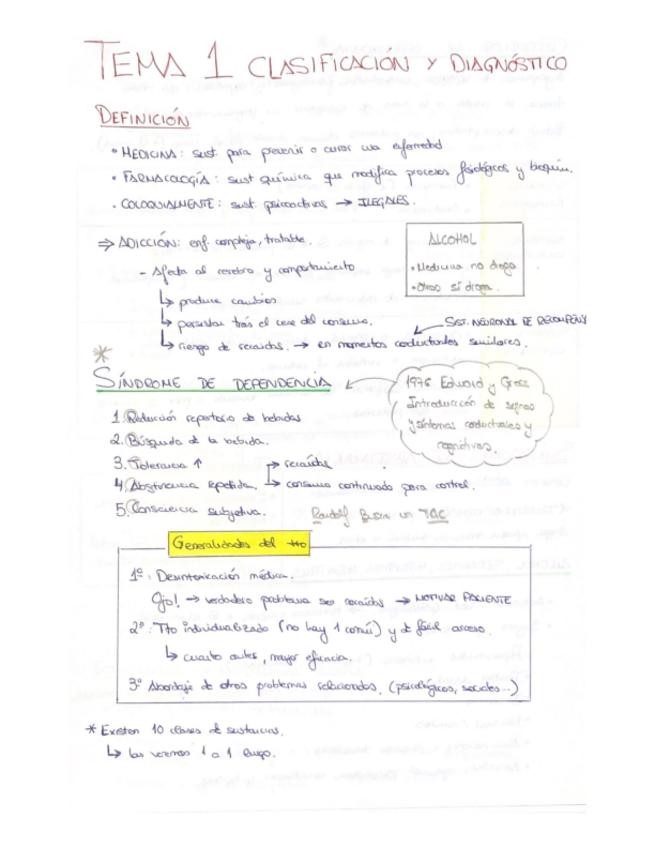 TEMA 1 CLASIFICACIÓN Y DIAGNÓSTICO
DEFINICIÓN
• MEDICINA: sust. para prevenir o curar una enfermedad
• FARMACOLOGÍA: sust química que modifica procesos fisiológicos y bioquím.
• COLOQUIALMENTE: sust. psicoactivas → ILEGALES.
⇒ ADICCIÓN: enf. compleja, tratable.
- Afecta al cerebro y comportamiento
↳ produce cambios
↳ persisten tras el cese del consumo.
↳ riesgo de recaídas. → en momentos conductuales similares.
SIST. NEURONAL DE RECOMPENSA
ALCOHOL
• Medicina no droga
• Otros sí droga.
* SÍNDROME DE DEPENDENCIA
1976 Edward y Gross
Introducción de signos
y síntomas conductuales y
cognitivos.
1. Reducción repertorio de bebidas
2. Búsqueda de la bebida.
3. Tolerancia ↑
4. Abstinencia repetida.
→ recaídas
↳ consumo continuado para control.
5. Consciencia subjetiva.
Busca un TAC
Generalidades del tto
1º: Desintoxicación médica.
Ojo! → verdadero problema son recaídas → MOTIVAR PACIENTE
2º: Tto individualizado (no hay 1 común) y de fácil acceso.
↳ cuanto antes, mayor eficacia.
3º Abordaje de otros problemas relacionados. (psicológicos, sociales...)
* Existen 10 clases de sustancias.
↳ las veremos 1 a 1 luego.